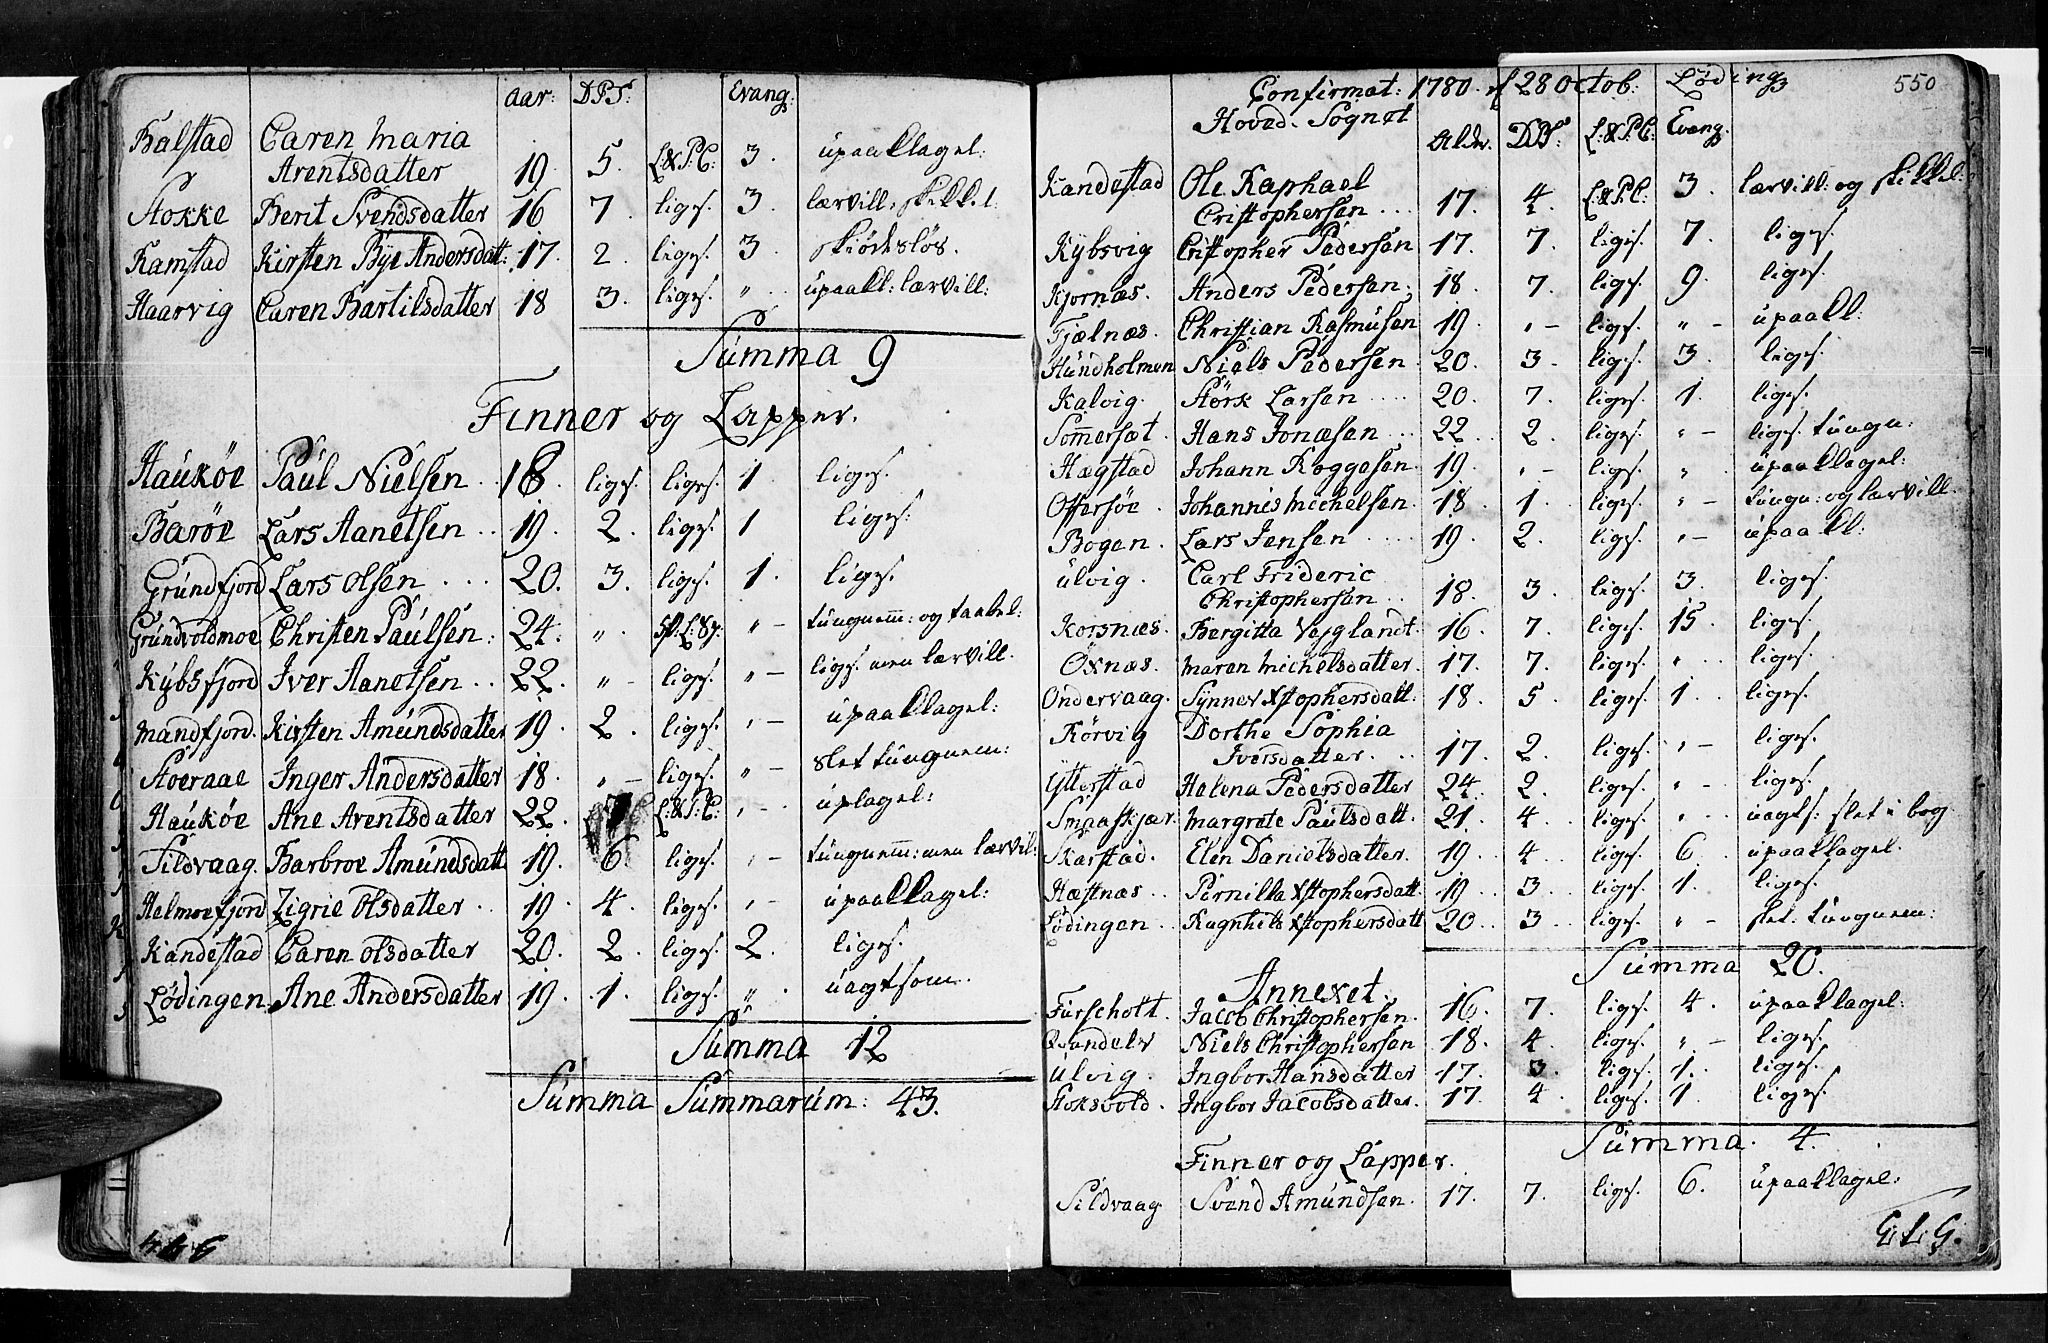 Aar: D.P.S: Evang:
Balstad Caren Maria
Arentsdatter 19. 5. L:&P:C: 3. upaaklagel:
Stokke Berit Svendsdatter 16 7. liges. 3. lærvill, skikkel:
Ramstad Kirsten Bye Andersdatt: 17. 2. liges. 3. skiødesløs.
Haarvig Caren Bartilsdatter 18 3. liges. " . upaakl: lærvill:
Summa 9
Finner og Lapper.
Haukøe Paul Nielsen .. 18. liges. liges. 1 liges.
Barøe Lars Aanetsen .. 19. 2. liges. 1 liges:
Grundfjord Lars Olsen .... 20. 3. liges. 1. liges.
Grundvoldmoe Christen Paulsen: 24. " . " - tungnem: og taabel:
Kybsfjord Iver Aanetsen .. 22. " - liges. " - liges. men lærvill.
Mandfjord. Kirsten Amundsdatter 19. 2. liges. " - upaaklagel:
Inger Andersdatter 18. " - liges. " - slet tungnem:
Haukøe Ane Arentsdatter 22. L:&P:C: " - uplagel:
Sildvaag. Barbroe Amundsdatt 19. 6. liges. " - tungnem: men lærvil:
Helmoefjord Zigrie Olsdatter .. 19. 4. liges. " - upaaklagel:
Kandestad Caren Olsdatter 20. 2. liges. 2. liges.
Lødingen. Ane Andersdatter 19. 1. liges. " . uagtsom.
Summa 12
Summa Summarum: 43.
Confirmat: 1780. d 28 Octob: Løding 550
Hoved-Sognet Alder. D.P.S: L:&P:C: Evang
Kandestad Ole Raphael
Cristophersen ... 17. 4. L:&P:C: 3. lærvill: og skikkel:
Kybsvig Cristopher Pedersen 17. 7. liges. 7. liges.
Kjornæs. Anders Pedersen. 18. 7. liges. 9. liges.
Fjælnæs. Christian Rasmusen 19. " - liges. " - upaakl:
Hundholmen Niels Pedersen. 20. 3. liges. 3. liges.
Kalvig. Størk Larsen .... 20. 7. liges. 1. liges.
Sommersæt. Hans Jonæsen .. 22. 2. liges. " - liges. tungn:
Hægstad Johann Roggesen. 19. " - liges. " . upaaklagel:
Offersøe. Johannis Michelsen. 18. 1. liges. " - tungn: og lærvill.
Bogen. Lars Jensen .... 19. 2. liges. " - upaakl:
Ulvig. Carl Frideric
Christophersen .. 18. 3. liges. 3. liges.
Korsnæs. Bergitta Vejglandt. 16. 7. liges. 15. liges.
Öxnæs. Maren Michelsdatter. 17. 7. liges. " . liges.
Ondervaag. Synnev Xstophersdatt: 18. 5. liges. 1. liges.
Rørvig Dorthe Sophia
Iversdatter ... 17. 2. liges. " - liges.
Ytterstad Halena Pedersdatter 24. 2. liges. " - liges.
Smaaskjær. Margrete Paulsdatt. 21. 4. liges. " . uagts: slet i bog
Skarstad. Elen Danielsdatter. 19. 4. liges. 6. upaaklagel.
Hæstnæs .. Pernilla Xstophersdatt. 19. 3. liges. 1. liges.
Lødingen .. Ragnhils Xstophersdatt 20. 3. liges. " - slet: tungnem:
Summa 20.
Annexet.
Furscholt. Jacob Christophersen. 16. 7. liges. 4. upaaklagel:
Niels Christophersen 18. 4. liges. " - liges.
Ulvig. Ingbor Hansdatter 17. 3. liges. 1. liges.
Stoksvold. Ingbor Jacobsdatter. 17. 4. liges. 1. liges.
Summa. 4.
Finner og Lapper.
Sildvaag Svend Amundsen. 17. 7. liges. 6. upaaklagel: